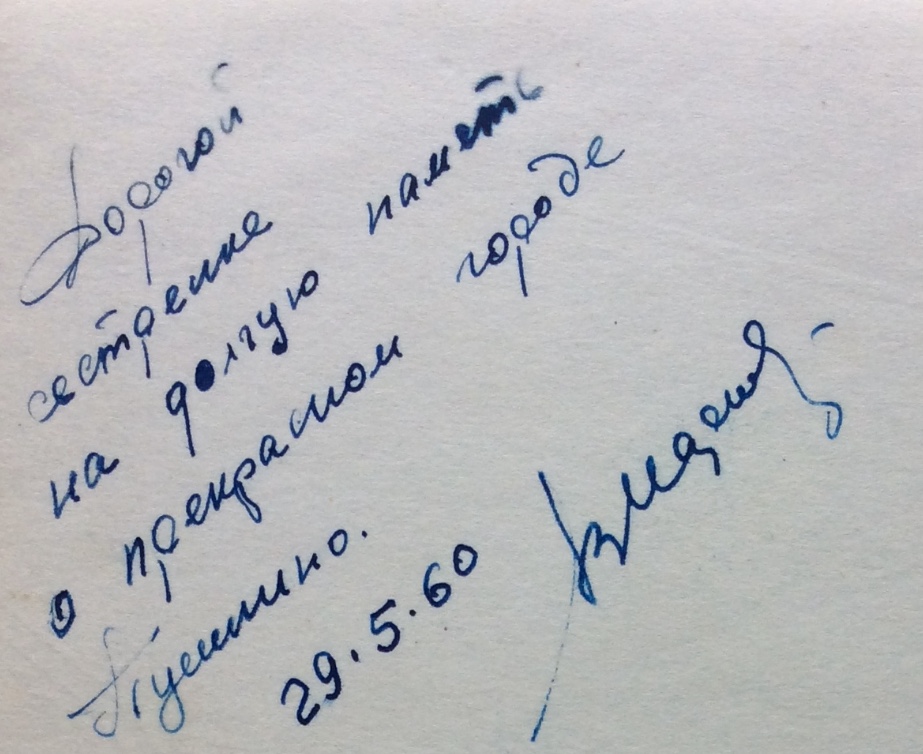 Дорогой
сестренке
на долгую память
о прекрасном городе
Пушкино.
29.5.60